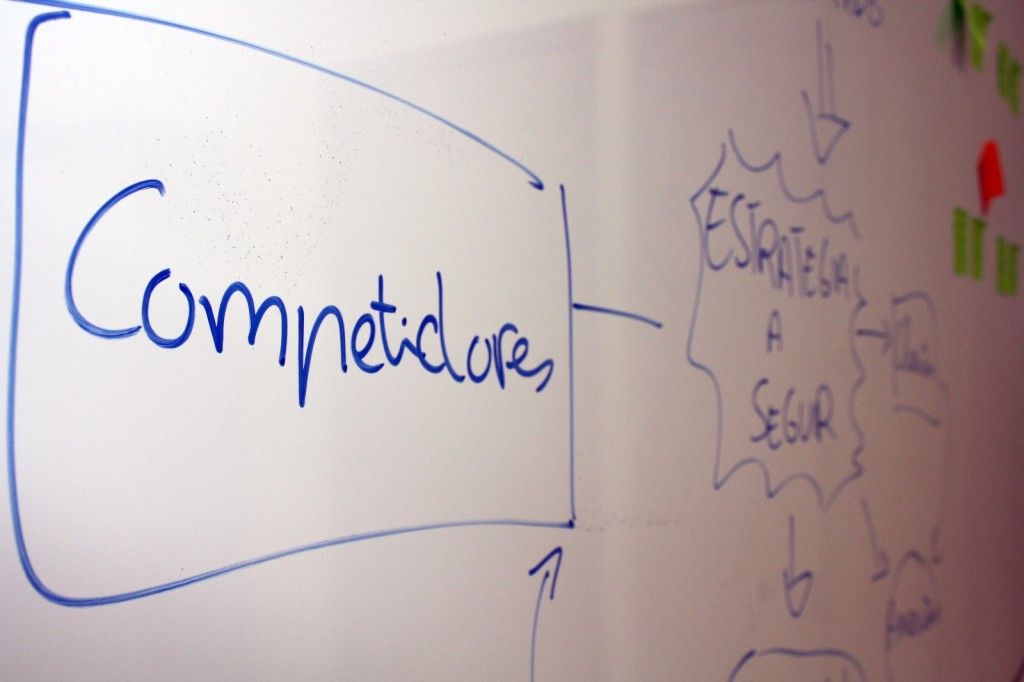 Competidores
ESTRATEGIA
A
SEGUIR